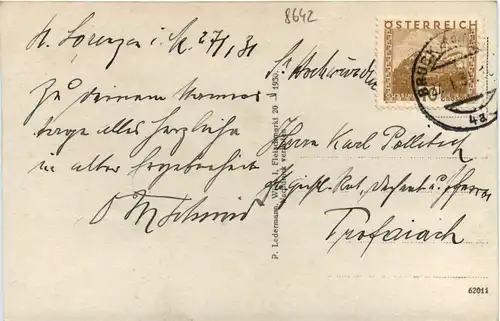 8642
St. Lorenzen i. M. 27/1. 31
Zu deinem Namens
tage alles herzliche
in alter Ergebenheit
Schmid
P. Ledermann, Wien I, Fleischmarkt 20 – 1930.
ÖSTERREICH
GROSCHEN
BRUCK
4a
Sr Hochwürden
Herrn Karl Pollitsch
geistl. Rat, Dechant u. Pfarrer
Trofaiach
62011